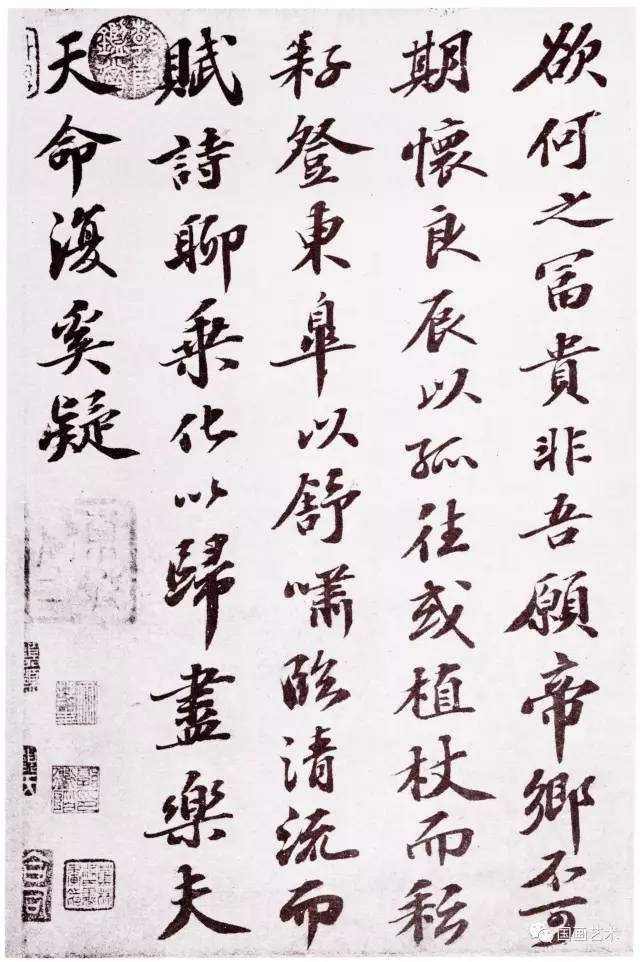 欲何之冨貴非吾願帝鄉不可
期懷良辰以孤往或植杖而耘
耔登東皐以舒嘯臨清流而
賦詩聊乘化以歸盡樂夫
天命復奚疑
乾隆鑑賞
国画艺术